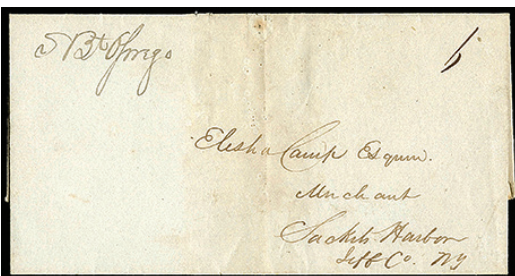 S Bt Oswego
6
Elisha Camp Esquire.
Merchant
Sackets Harbor
Jeff Co. NY